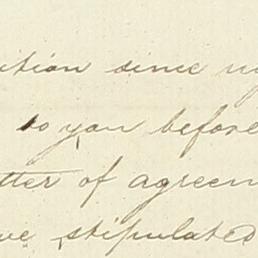 ution since
to you before
tter of agreem
ve stipulated